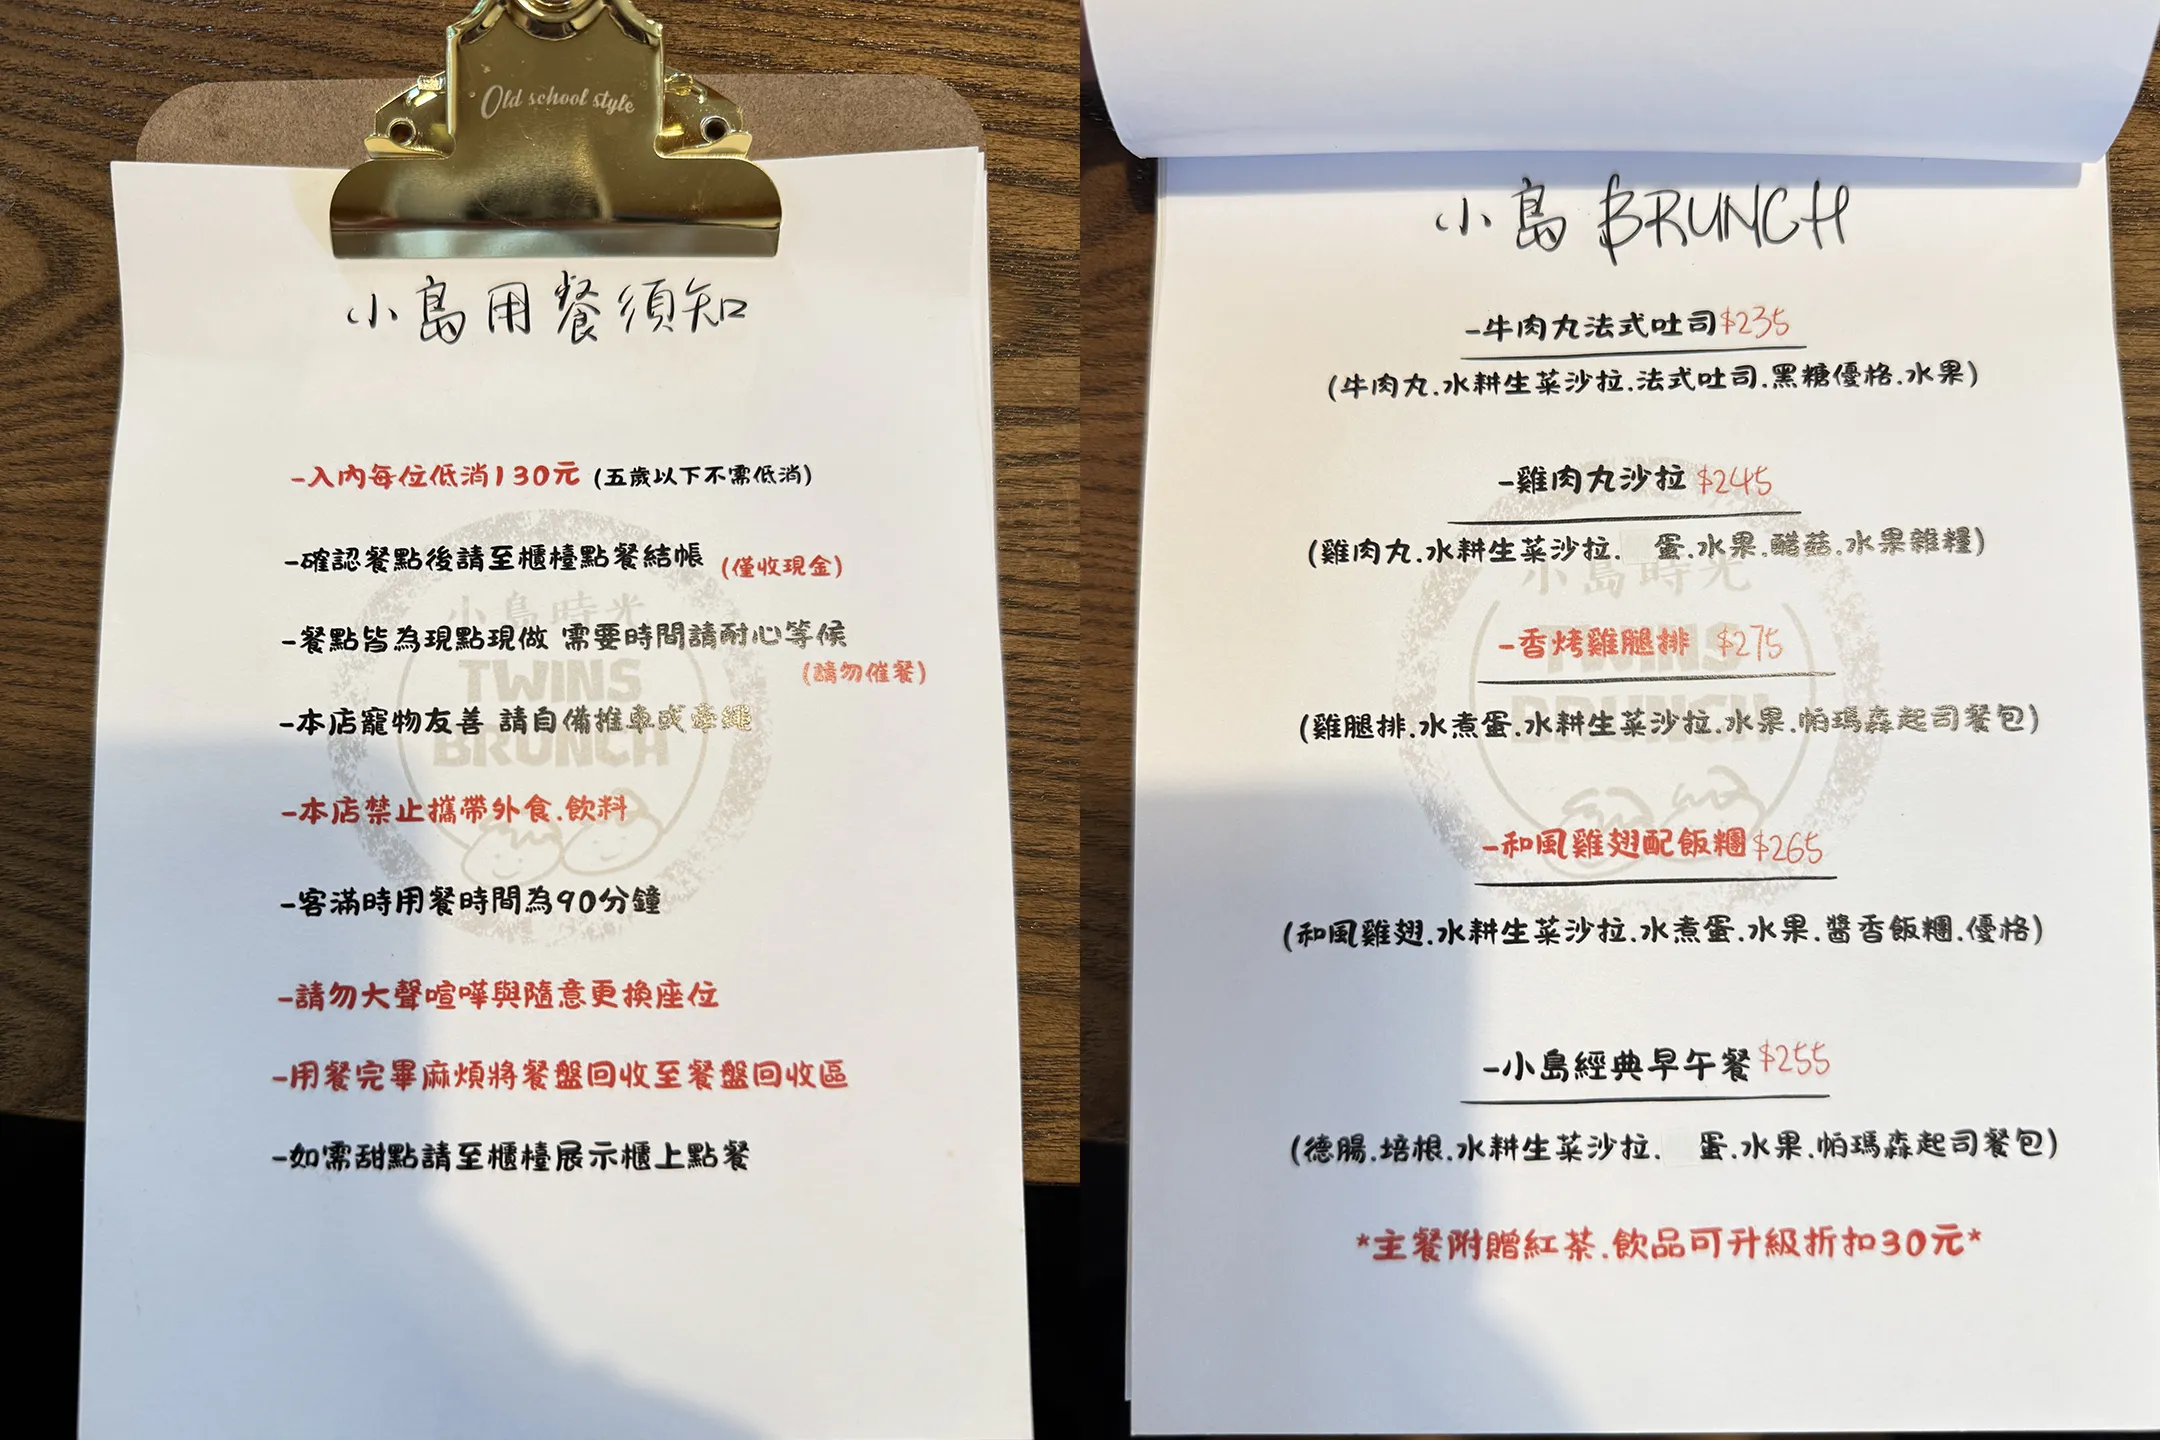 Old school style
小島用餐須知
-入內每位低消130元 (五歲以下不需低消)
-確認餐點後請至櫃檯點餐結帳 (僅收現金)
-餐點皆為現點現做 需要時間請耐心等候
(請勿催餐)
-本店寵物友善 請自備推車或牽繩
-本店禁止攜帶外食.飲料
-客滿時用餐時間為90分鐘
-請勿大聲喧嘩與隨意更換座位
-用餐完畢麻煩將餐盤回收至餐盤回收區
-如需甜點請至櫃檯展示櫃上點餐
小島時光
TWINS
BRUNCH
小島 BRUNCH
-牛肉丸法式吐司 $235
(牛肉丸.水耕生菜沙拉.法式吐司.黑糖優格.水果)
-雞肉丸沙拉 $245
(雞肉丸.水耕生菜沙拉. 蛋.水果.醋菇.水果雜糧)
-香烤雞腿排 $275
(雞腿排.水煮蛋.水耕生菜沙拉.水果.帕瑪森起司餐包)
-和風雞翅配飯糰 $265
(和風雞翅.水耕生菜沙拉.水煮蛋.水果.醬香飯糰.優格)
-小島經典早午餐 $255
(德腸.培根.水耕生菜沙拉. 蛋.水果.帕瑪森起司餐包)
*主餐附贈紅茶.飲品可升級折扣30元*
小島時光
TWINS
BRUNCH